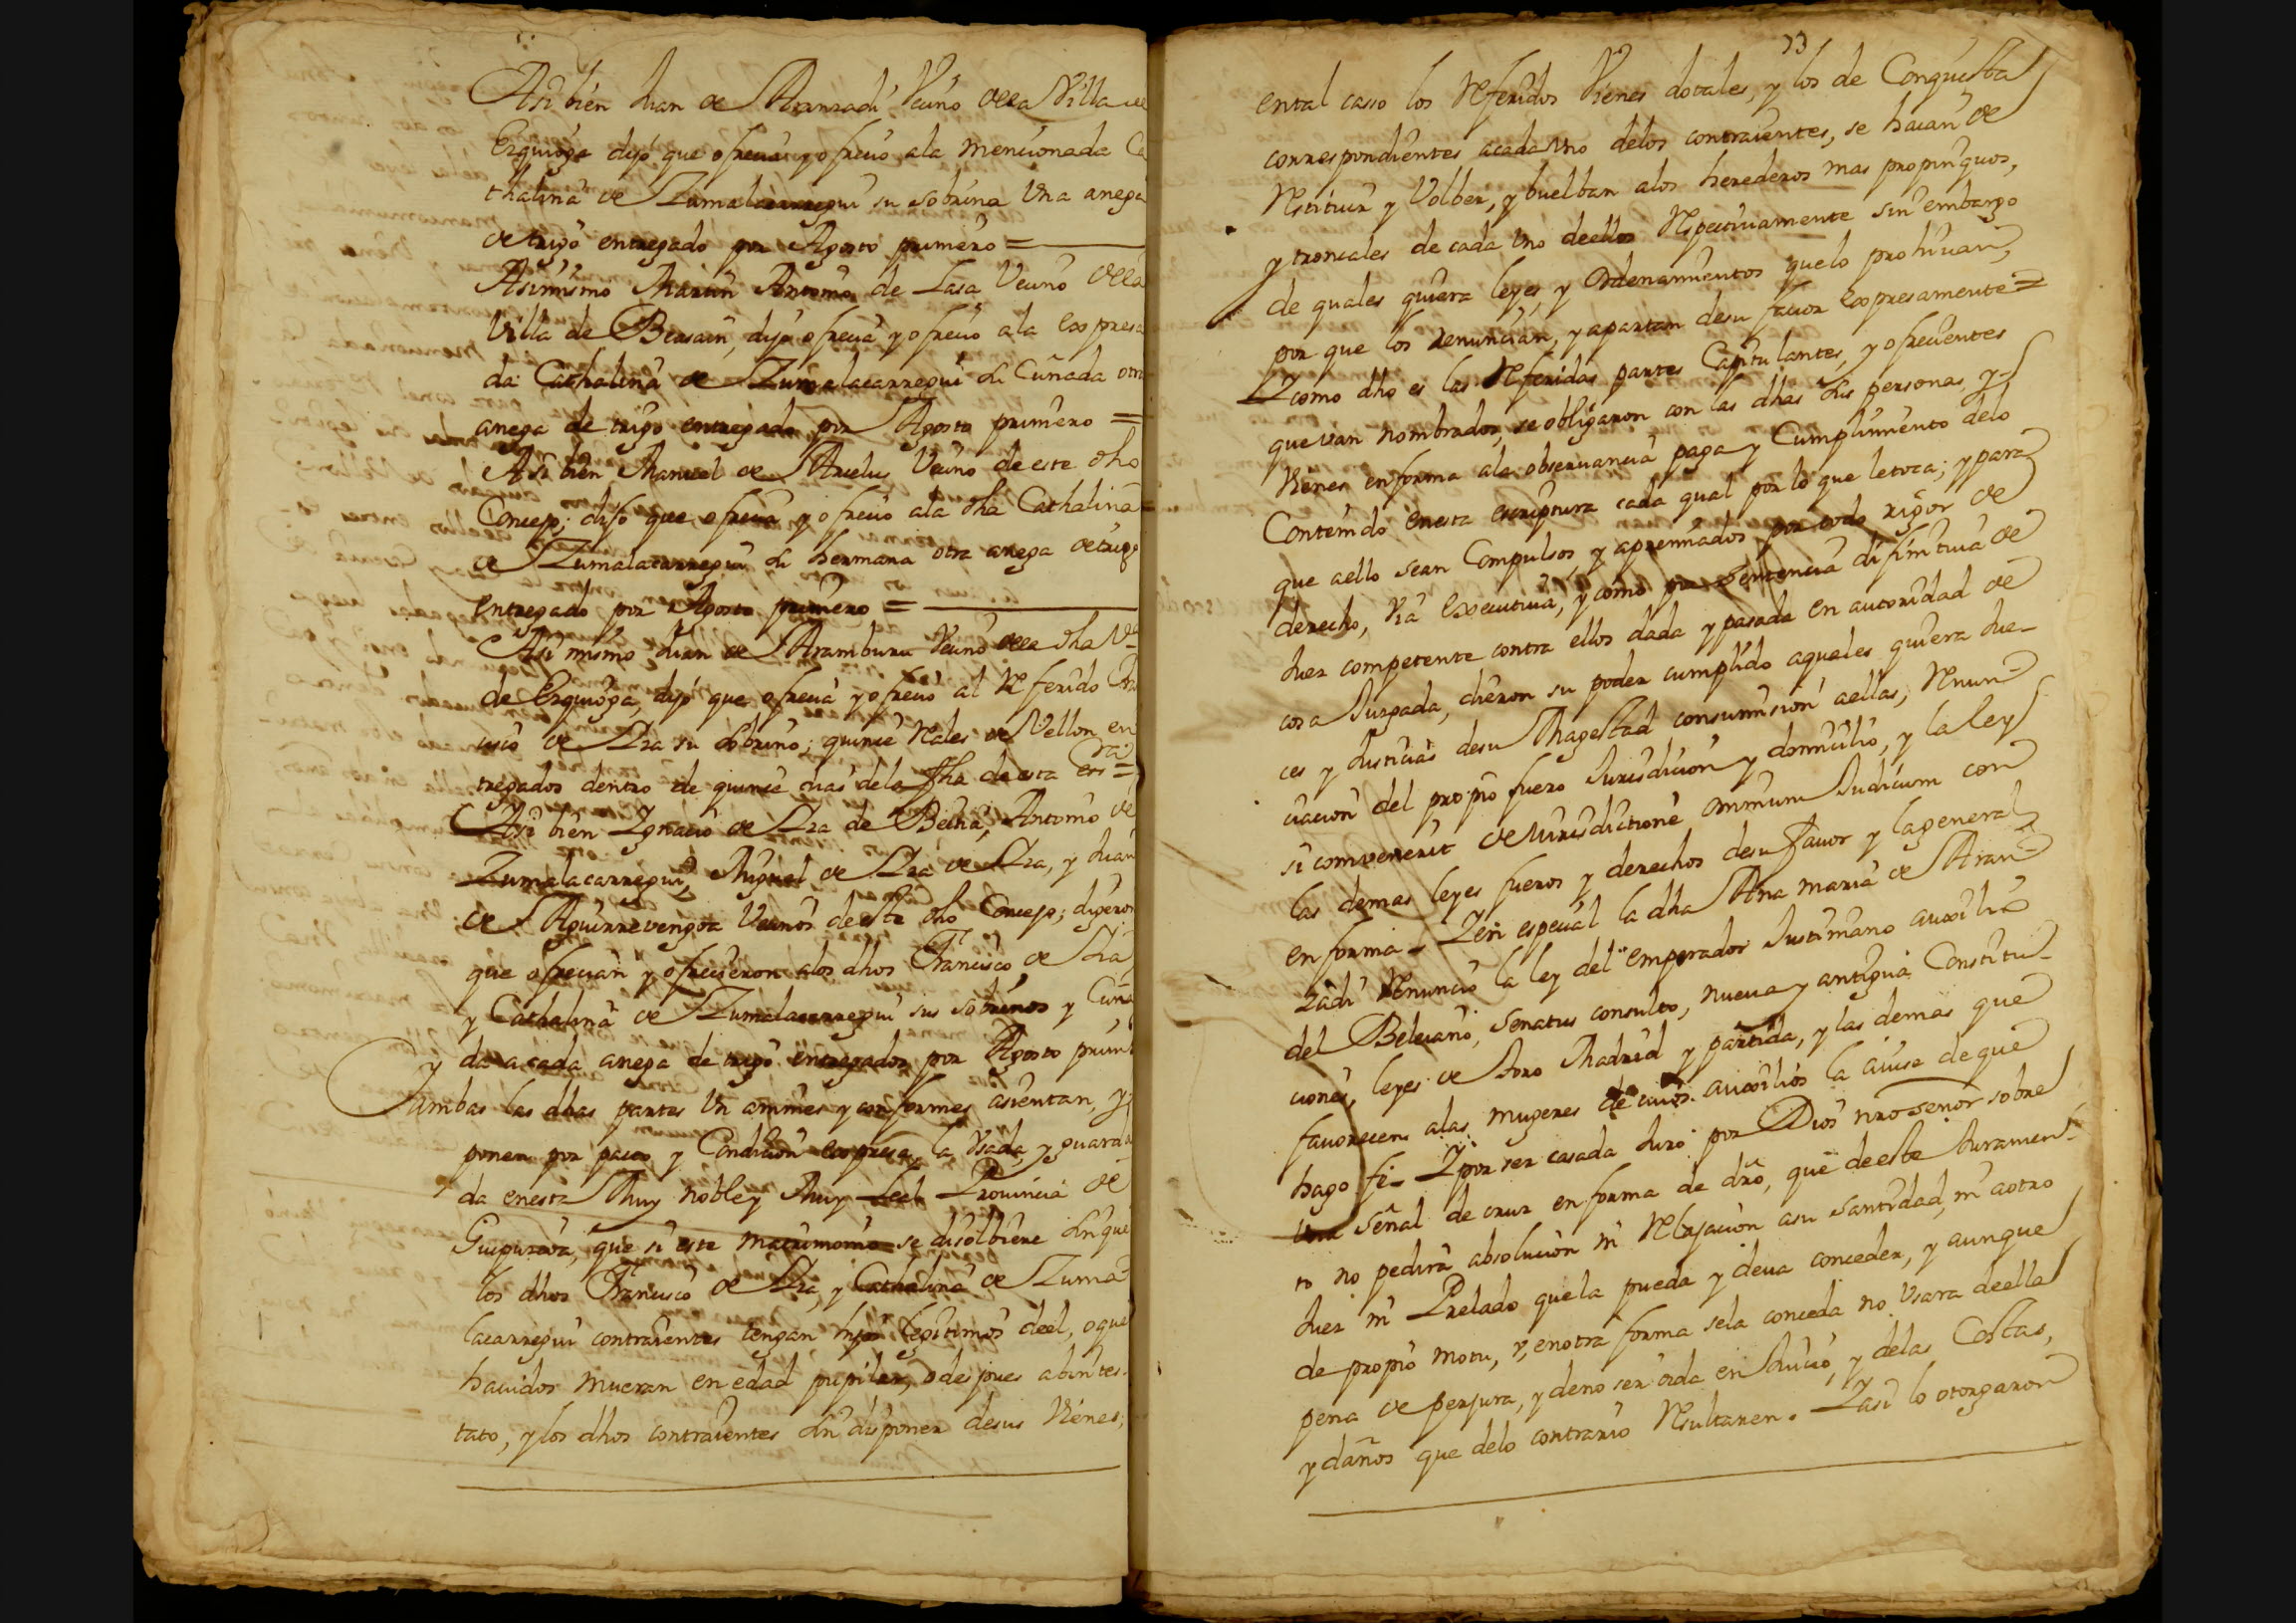 Asi bien Juan de Aranzadi Vecino dela Villa de
Ezquioga dijo que ofrecia y ofrecio ala mencionada Ca
thalina de Zumalacarregui su sobrina Una anega
de trigo entregado por Agosto primero =
Asimismo Martin Antonio de Lasa Vecino dela
Villa de Beasain, dijo ofrecia y ofrecio ala expresa
da Cathalina de Zumalacarregui su Cuñada otra
anega de trigo entregada por Agosto primero =
Asi bien Manuel de Arielus Vecino de este dho
Concejo; dijo que ofrecia y ofrecio ala dha Cathalina
de Zumalacarregui su hermana otra anega de trigo
entregado por Agosto primero =
Asi mismo Juan de Aramburu Vecino dela dha Vª
de Ezquioga, dijo que ofrecia y ofrecio al Referido Fran
cisco de Lra su sobrino; quince Reales de Vellon en
tregados dentro de quince dias dela fha de esta Essra=
Asi bien Ignacio de Lra de Beina, Antonio de
Zumalacarregui, Miguel de Lra de Lra, y Juan
de Aguirrevengoa Vecinos de este dho Concejo; digeron
que ofrecian y ofrecieron alos dhos Francisco de Lra
y Cathalina de Zumalacarregui sus sobrinos y Cuña
da a cada anega de trigo entregados por Agosto prim
Y ambas las dhas partes Un animes y conformes asientan, y
ponen por pacto y Condicion expresa, la Usada, y guarda
da enesta Muy noble y Muy Leal Provincia de
Guipuzcoa, que si este matrimonio se disolbiere sin que
los dhos Francisco de Lra, y Cathalina de Zuma
lacarregui contraientes tengan hijos legitimos deel, o que
hauidos mueran en edad pupilar, o despues abintes-
tato, y los dhos contraientes sin disponer desus Vienes;
73
ental caso los Referidos Vienes dotales, y los de Conquista
correspondientes acada Uno delos contraientes, se haian de
Restituir y Volber, y buelban alos herederos mas propinquos,
y troncales de cada Uno deellos Respectiuamente sin embargo
de quales quiera leyes, y Ordenamientos quelo prohiuan,
por que los renuncian, y apartan desu fauor expresamente =
Y como dho es las Referidas partes Capitulantes, y ofrecientes
que van nombrados, se obligaron con las dhas sus personas, y
Vienes enforma ala obseruancia paga y Cumplimiento delo
Contenido enesta escriptura cada qual por lo que letoca; y para
que aello sean Compulsos, y apremiados por todo rigor de
derecho, Via executiua, y como por sentencia difinitiua de
Juez competente contra ellos dada y pasada en autoridad de
cosa Juzgada, dieron su poder cumplido aquales quiera Jue-
ces y Justicias desu Magestad consumision aellas, Renun
ciacion del propio fuero Jurisdicion y domicilio, y la ley
si convenerit de Jurisdictione omnium Judicum con
las demas leyes fueros y derechos desu fauor y la general
enforma. Y en especial la dha Ana maria de Aran-
zadi Renuncio la ley del emperador Justiniano auxilio
del Beleiano, Senatus consulto, nueua y antigua Constitu-
ciones, leyes de toro Madrid y partida, y las demas que
fauorecen alas mugeres de cuios auxilios la auise de que
hago fe. Y por ser casada Juro por Dios nro señor sobre
Una señal de cruz en forma de dro, que deeste Juramen-
to no pedira absolucion ni Relajacion asu santidad, ni aotro
Juez ni Prelado quela pueda y deua conceder, y aunque
de propio motu, y, enotra forma sela conceda no Usara deella
pena de perjura, y deno ser oida en Juicio, y delas Costas,
y daños que delo contrario Resultaren. Y asi lo otorgaron